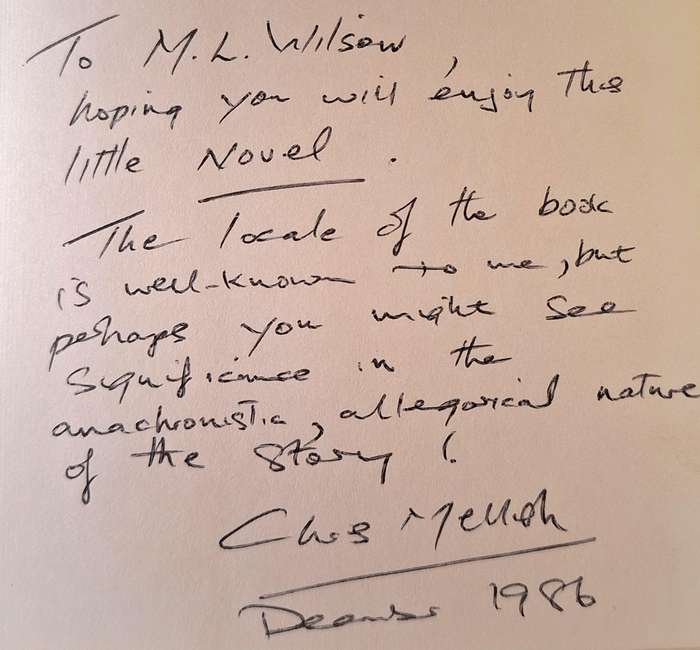 To M.L. Wilson,
hoping you will enjoy this
little Novel.
The locale of the book
is well-known to me, but
perhaps you might see
significance in the
anachronistic, allegorical nature
of the story!
Chris Mellish
December 1986